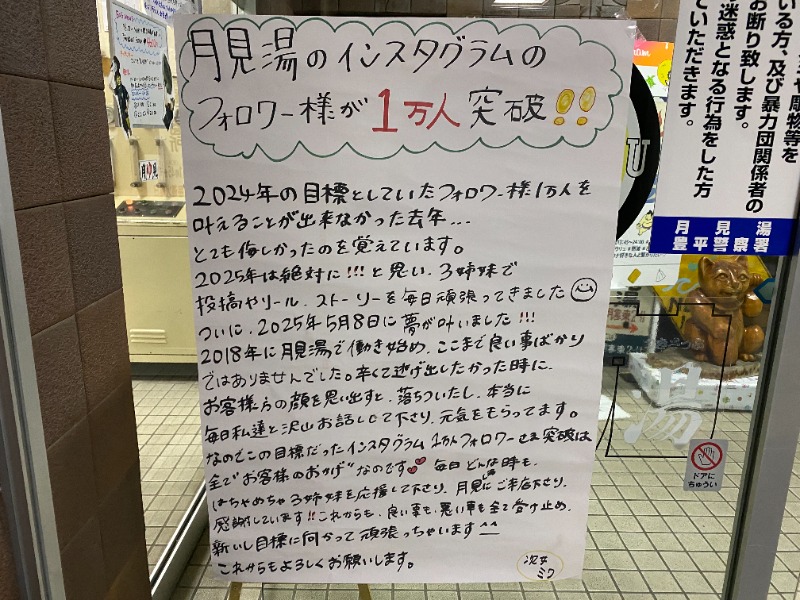 月見湯のインスタグラムの
フォロワー様が1万人突破!!
2024年の目標としていたフォロワー様1万人を
叶えることが出来なかった去年...
とても悔しかったのを覚えています。
2025年は絶対に!!!と思い、3姉妹で
投稿やリール、ストーリーを毎日頑張ってきました
ついに、2025年5月8日に夢が叶いました!!!
2018年に月見湯で働き始め、ここまで良い事ばかり
ではありませんでした。辛くて逃げ出したかった時に、
お客様方の顔を思い出すと、落ちついたし、本当に
毎日私達と沢山お話しして下さり、元気をもらってます。
なのでこの目標だったインスタグラム1万人フォロワーさま突破は
全て"お客様のおかげ"なのです♥ 毎日どんな時も、
はちゃめちゃ3姉妹を応援して下さり、月見湯にご来店下さり、
感謝しています!!これからも、良い事も、悪い事も全て受け止め、
新しい目標に向かって頑張っちゃいます^^
これからもよろしくお願いします。
次女
ミワ
彫物等を
いる方、及び暴力団関係者の
お断り致します。
迷惑となる行為をした方
ていただきます。
月見湯
豊平警察署
U
湯
ドアに
ちゅうい
月見